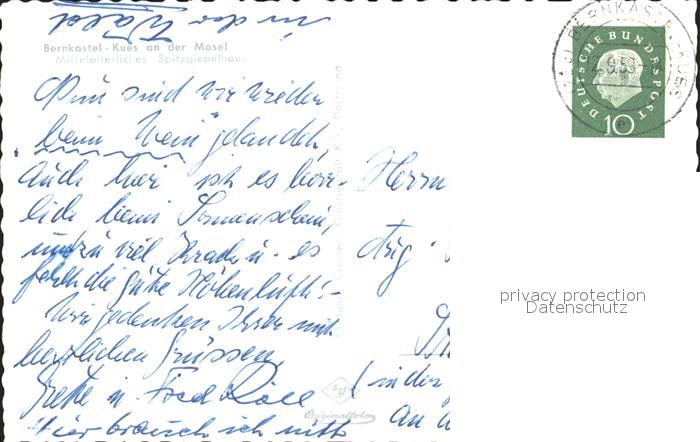 in der Wald
Bernkastel-Kues an der Mosel
Mittelalterliches Spitzgiebelhaus
Nun sind wir wieder
beim Wein gelandet,
Auch hier ist es herr-
lich beim Sonnenschein,
nur zu viel Krach u. es
fehlt die gute Höhenluft!-
Wir gedenken Ihrer mit
herzlichen Grüssen
Grete u. Fred
Hier brauch ich nicht
Herrn
Aug.
in der
An d
BERNKASTEL-KUES
2.9.59
DEUTSCHE BUNDESPOST
10
Originalfoto
privacy protection
Datenschutz